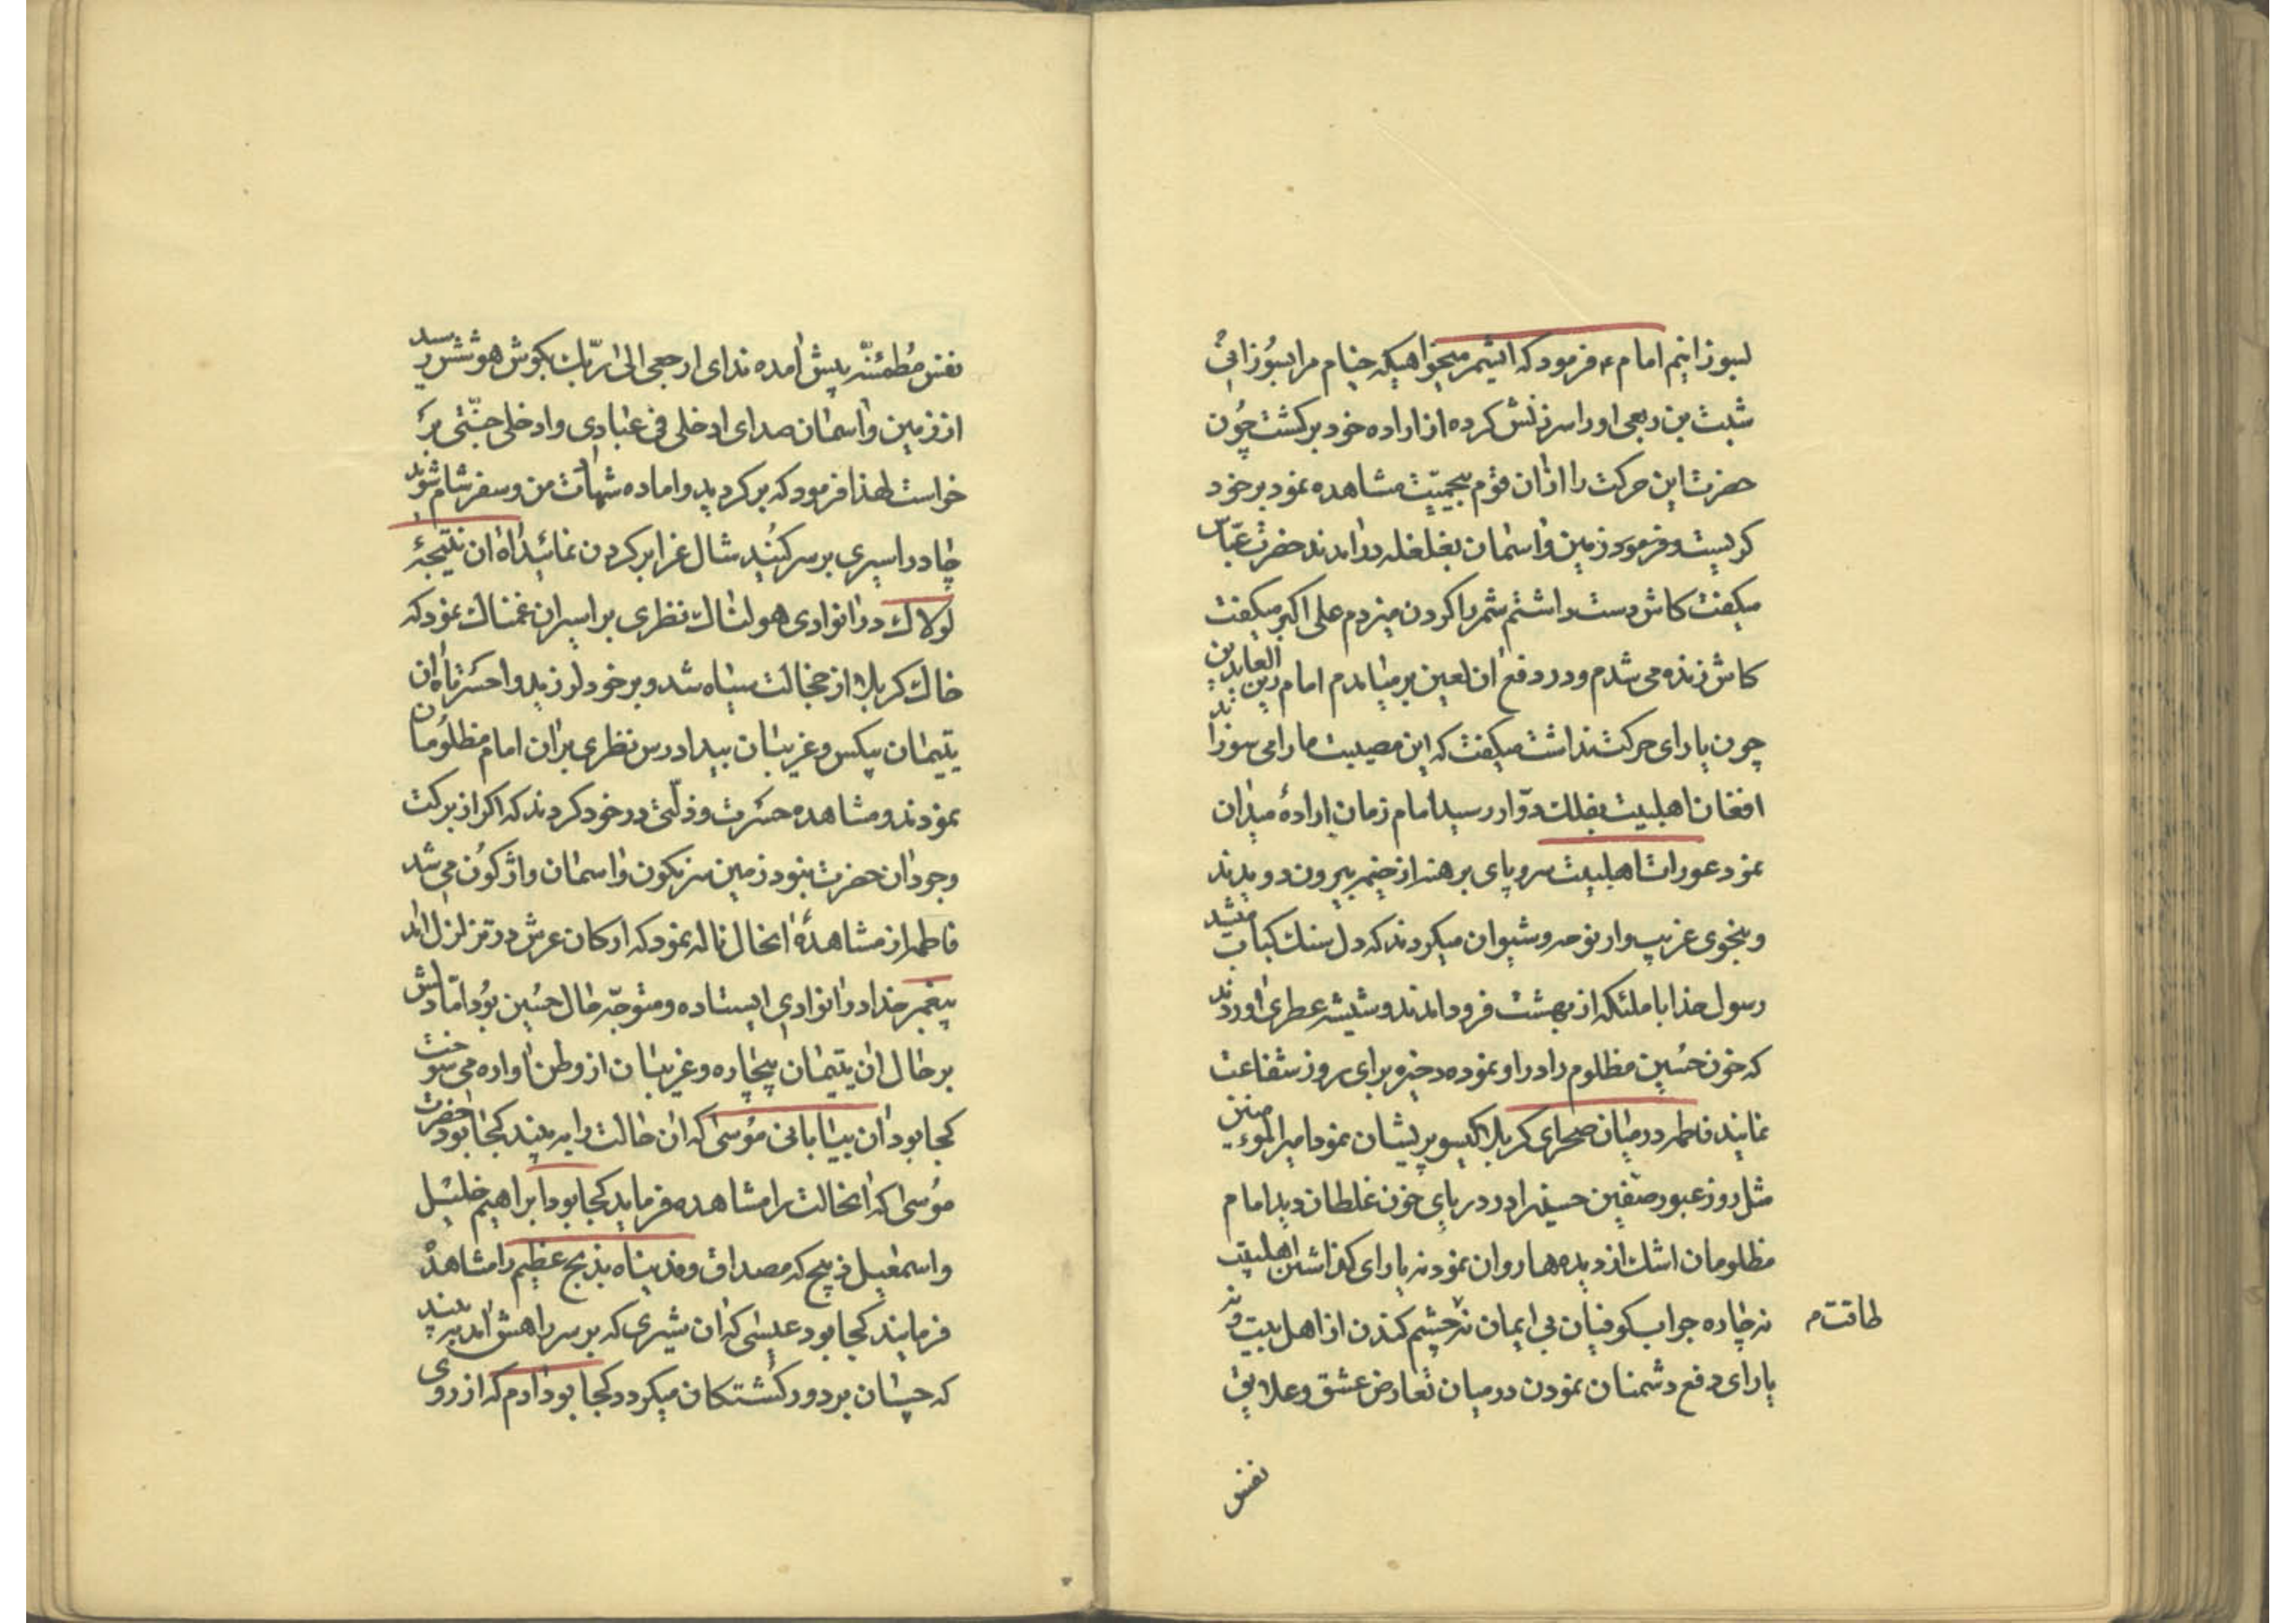 بسوزانیم امام ع فرمود که ایشمر میخواهیکه خیام مرا بسوزانی
شبث بن ربعی او را سرزنش کرده از اراده خود برکشت چون
حضرت این حرکت را از ان قوم بیحمیّت مشاهده نمود بر خود
کریست و فرمود زمین و اسمان بغلغله در امدند حضرت عبّاس
میکفت کاش دست داشتم شمر را کردن میزدم علی اکبر میکفت
کاش زنده می شدم و در دفع ان لعین بر میامدم امام زین العابدین
چون یارای حرکت نداشت میکفت که این مصیبت ما را می سوزاند
افغان اهلبیت بفلک دوّار رسید امام زمان اراده میدان
نمود عورات اهلبیت سر و پای برهنه از خیمه بیرون دویدند
و بنحوی غریب وار نوحه و شیوان میکردند که دل سنک کباب میشد
رسول خدا با ملئکه از بهشت فرود امدند و شیشه عطری اوردند
که خون حسین مظلوم را در او نموده ذخیره برای روز شفاعت
نمایند فاطمه در میان صحرای کربلا کیسو پریشان نمود امیر المؤمنین
مثل روز عبور صفین حسین را در دریای خون غلطان دید امام
مظلومان اشک از دیده ها روان نمود نه یارای کذاشتن اهلبیت
نه چاره جواب کوفیان بی ایمان نه چشم کندن از اهل بیت و نه
طاقت م
یارای دفع دشمنان نمودن در میان تعارض عشق و علایق
نفس
نفس مُطمئنّه پیش امده ندای ارجعی الی ربّک بکوش هوشش رسید
از زمین و اسمان صدای ادخلی فی عبادی و ادخلی جنّتی بر
خواست لهذا فرمود که برکردید و اماده شهادت من و سفر شام شوید
چادر اسیری بر سر کنید شال عزا بر کردن نمائید اه ان نتیجهٔ
لولاک در انوادی هولناک نظری بر اسیران غمناک نمود که
خاک کربلا از خجالت سیاه شد و بر خود لرزید وا حسرتاه ان
یتیمان بیکس و غریبان بیدادرس نظری بر ان امام مظلومان
نمودند و مشاهده حسرت و ذلّتی در خود کردند که اکر از برکت
وجود ان حضرت نبود زمین سرنکون و اسمان واژکون می شد
فاطمه از مشاهدهٔ انحال ناله نمود که ارکان عرش در تزلزل امد
پیغمبر خدا در انوادی ایستاده و متوجّه حال حسین بود امّا دلش
بر حال ان یتیمان بیچاره و غریبان از وطن اواره می سوخت
کجا بود ان بیابانی موسی که ان حالت را به بیند کجا بود احضرت
موسی که انحالت را مشاهده فرماید کجا بود ابراهیم خلیل
و اسمعیل ذبیح که مصداق و فدیناه بذبح عظیم را مشاهده
فرمایند کجا بود عیسی که ان شیری که بر سر راهش امد به بیند
که چسان بر دور کشتکان میکردد کجا بود ادم که از روی